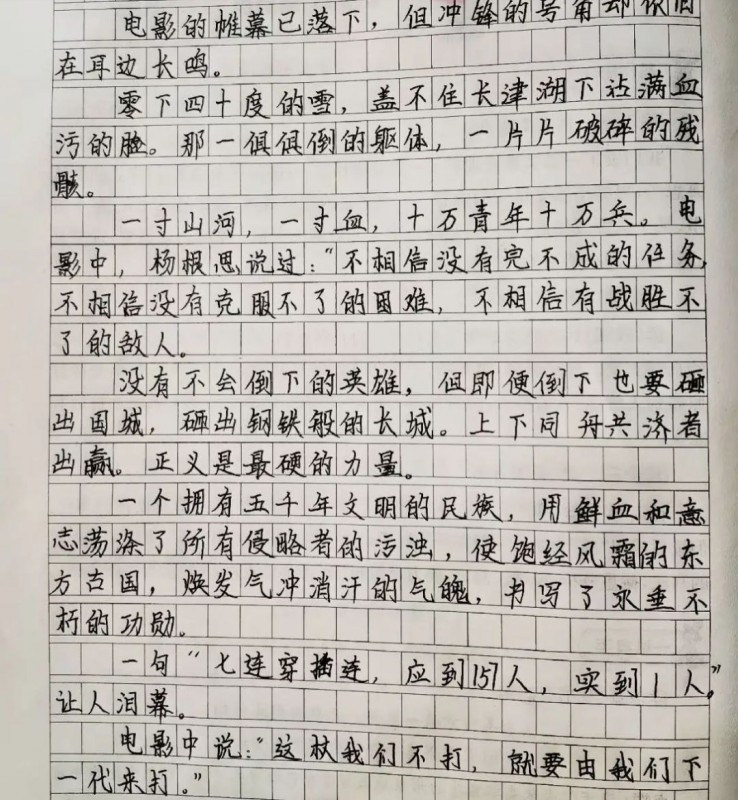 电影的帷幕已落下，但冲锋的号角却依旧
在耳边长鸣。
零下四十度的雪，盖不住长津湖下沾满血
污的脸。那一俱俱倒的躯体，一片片破碎的残
骸。
一寸山河，一寸血，十万青年十万兵。电
影中，杨根思说过：“不相信没有完不成的任务，
不相信没有克服不了的困难，不相信有战胜不
了的敌人。
没有不会倒下的英雄，但即便倒下也要砸
出国城，砸出钢铁般的长城。上下同舟共济者
出赢。正义是最硬的力量。
一个拥有五千年文明的民族，用鲜血和意
志荡涤了所有侵略者的污浊，使饱经风霜的东
方古国，焕发气冲消汗的气魄，书写了永垂不
朽的功勋。
一句“七连穿插连，应到157人，实到1人。”
让人泪幕。
电影中说：“这杖我们不打，就要由我们下
一代来打。”